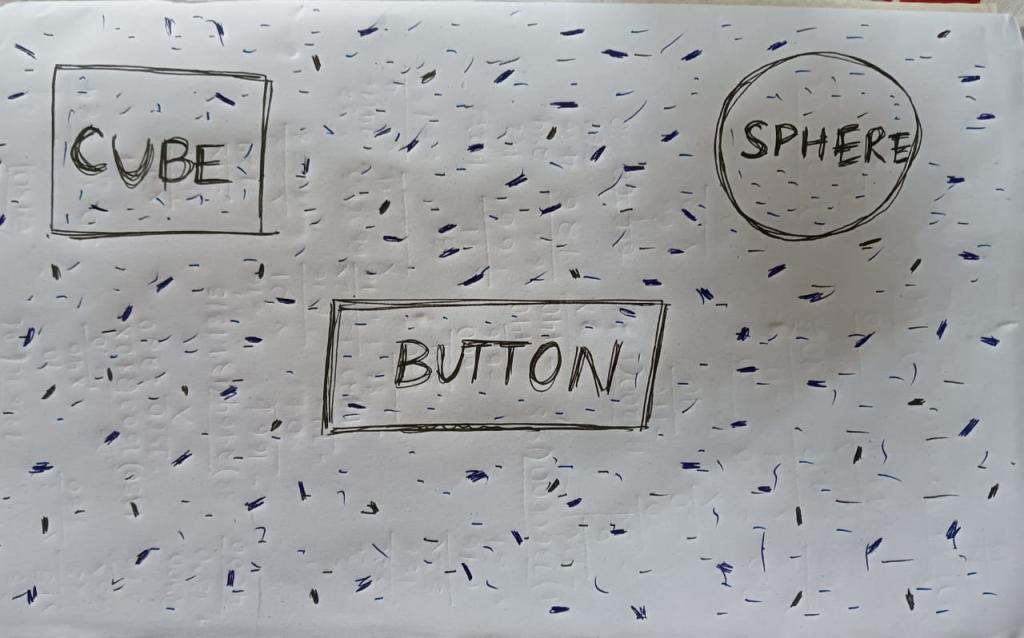 CUBE
SPHERE
BUTTON